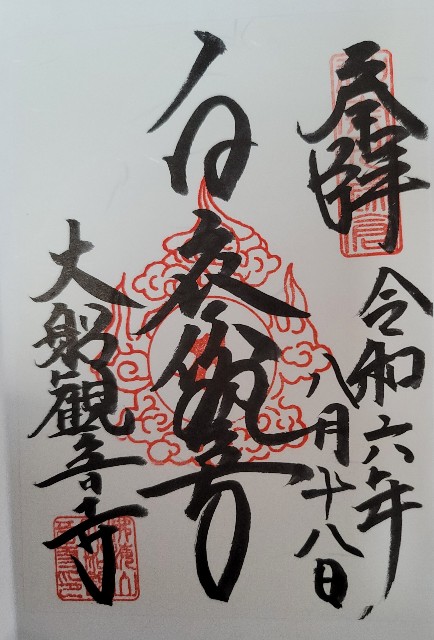 奉拝
令和六年
八月十八日
白衣観音
大船観音寺